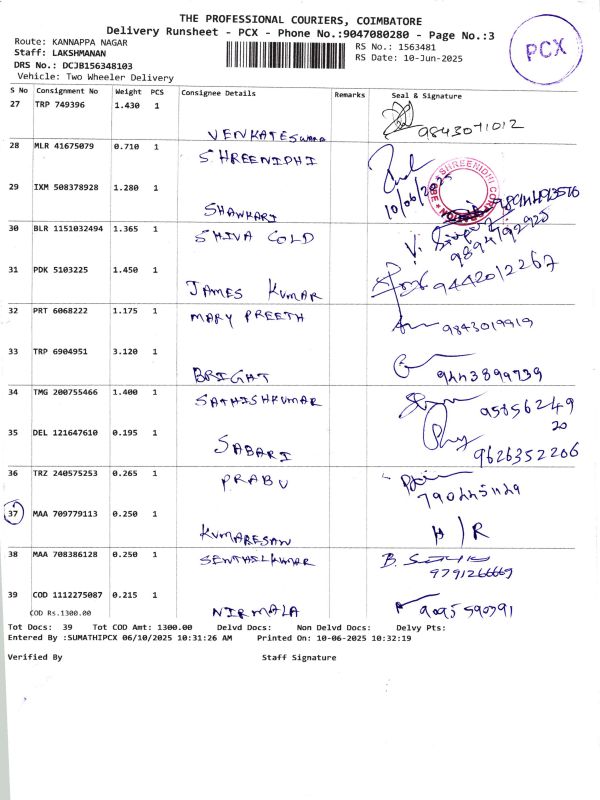 THE PROFESSIONAL COURIERS, COIMBATORE
Delivery Runsheet - PCX - Phone No.:9047080280 - Page No.:3
Route: KANNAPPA NAGAR
Staff: LAKSHMANAN
DRS No.: DCJB156348103
Vehicle: Two Wheeler Delivery
RS No.: 1563481
RS Date: 10-Jun-2025
PCX
S No Consignment No Weight PCS Consignee Details Remarks Seal & Signature
27 TRP 749396 1.430 1 VENKATESWARA 9843071012
28 MLR 41675079 0.710 1 SHREENIDHI 10/06/2025
SHREENIDHI
29 IXM 508378928 1.280 1 SHANKARI
30 BLR 1151032494 1.365 1 SHIVA GOLD 9894792925
31 PDK 5103225 1.450 1 JAMES KUMAR 9442012267
32 PRT 6068222 1.175 1 MARY PREETH 9843019919
33 TRP 6904951 3.120 1 BRIGHT 9443899739
34 TMG 200755466 1.400 1 SATHISHKUMAR 95856249
20
35 DEL 121647610 0.195 1 SABARI 9626352206
36 TRZ 240575253 0.265 1 PRABU
37 MAA 709779113 0.250 1 KUMARESAN H/R
38 MAA 708386128 0.250 1 SENTHILKUMAR
39 COD 1112275087 0.215 1 NIRMALA 9095590391
COD Rs.1300.00
Tot Docs: 39 Tot COD Amt: 1300.00 Delvd Docs: Non Delvd Docs: Delvy Pts:
Entered By :SUMATHIPCX 06/10/2025 10:31:26 AM Printed On: 10-06-2025 10:32:19
Verified By Staff Signature